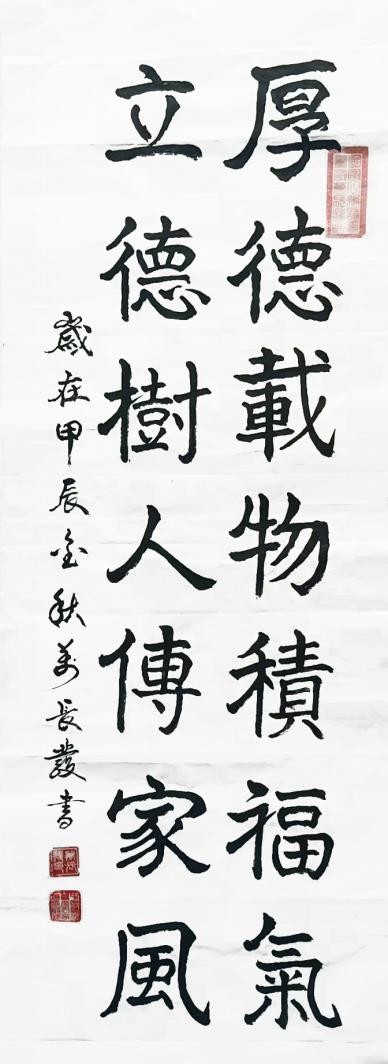 厚德載物積福氣
立德樹人傳家風
歲在甲辰金秋萬長發書